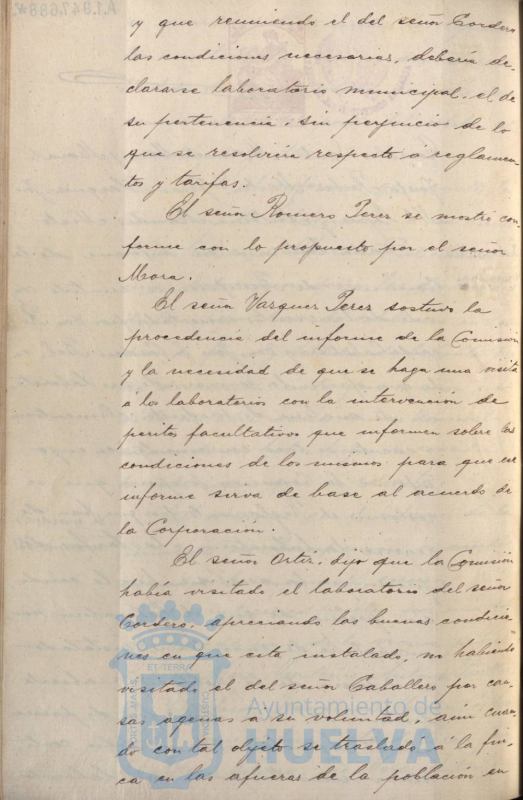 y que reuniendo el del señor Cordero
las condiciones necesarias, debería de-
clararse laboratorio municipal, el de
su pertenencia, sin perjuicio de lo
que se resolviera respecto á reglamen-
tos y tarifas.
El señor Romero Perez se mostró con-
forme con lo propuesto por el señor
Mora.
El señor Vazquez Perez sostuvo la
procedencia del informe de la Comision
y la necesidad de que se haga una visita
á los laboratorios con la intervencion de
peritos facultativos que informen sobre las
condiciones de los mismos para que ese
informe sirva de base al acuerdo de
la Corporación.
El señor Ortiz, dijo que la Comisión
había visitado el laboratorio del señor
Cordero, apreciando las buenas condicio-
nes en que está instalado, no habiendo
visitado el del señor Caballero por cau-
sas agenas á su voluntad, aun cuan-
do con tal objeto se trasladó á la fin-
ca en las afueras de la población en
A.1.947.688*
PORTUS MARIS
ET TERRÆ
CUSTODIA
Ayuntamiento de
HUELVA